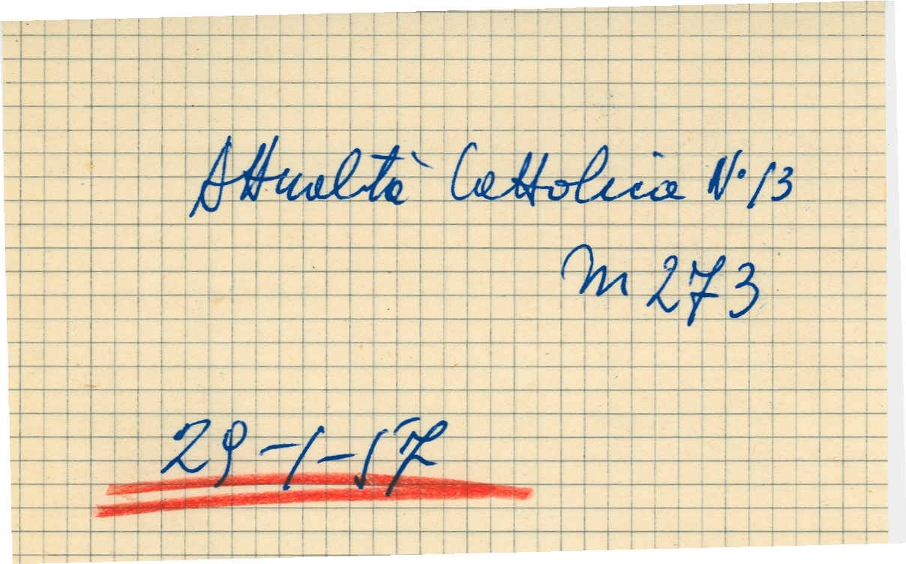 Attualtà Cattolica N. 13
m 273
29-1-57